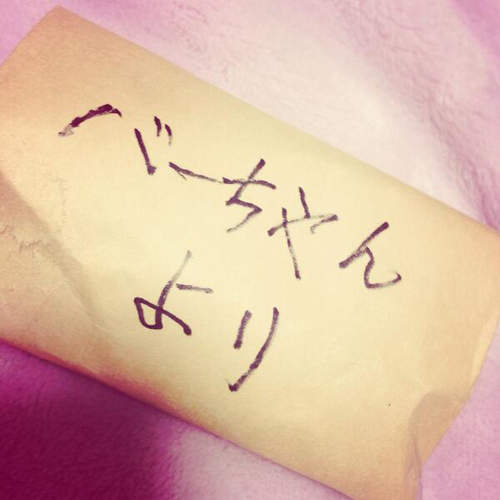 バーちゃん
より